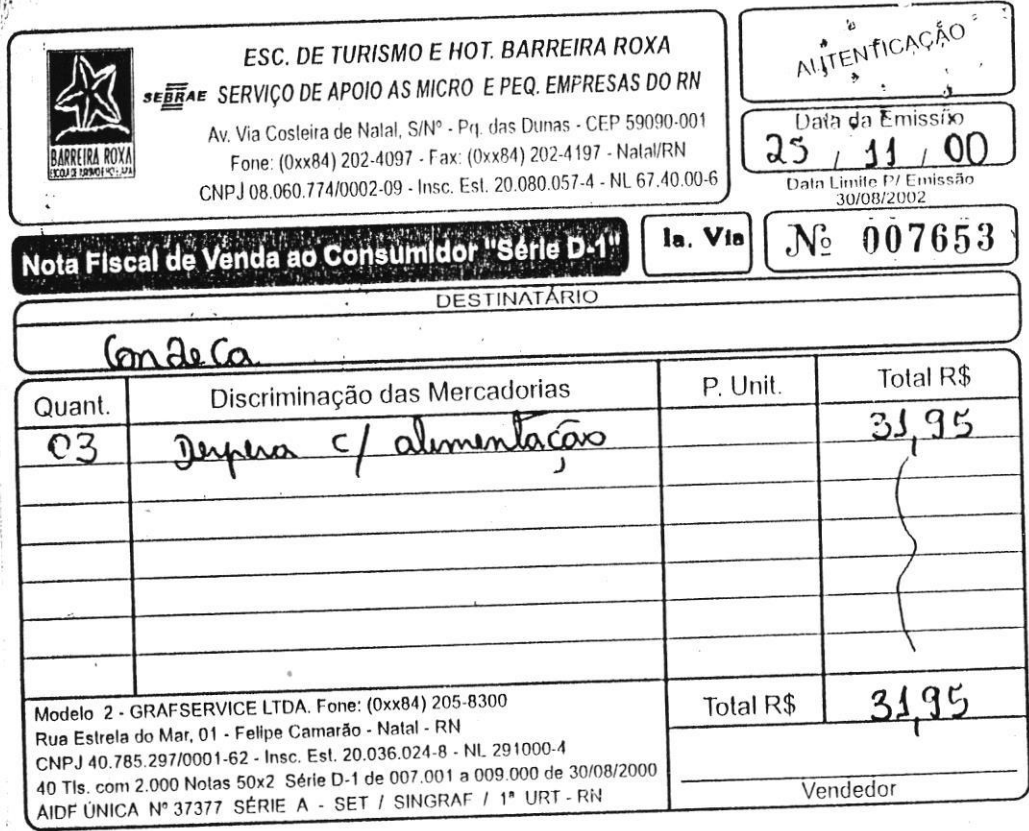 ESC. DE TURISMO E HOT. BARREIRA ROXA
SEBRAE SERVIÇO DE APOIO AS MICRO E PEQ. EMPRESAS DO RN
Av. Via Costeira de Natal, S/Nº - Pq. das Dunas - CEP 59090-001
Fone: (0xx84) 202-4097 - Fax: (0xx84) 202-4197 - Natal/RN
CNPJ 08.060.774/0002-09 - Insc. Est. 20.080.057-4 - NL 67.40.00-6
BARREIRA ROXA
AUTENTICAÇÃO
Data da Emissão
25 / 11 / 00
Data Limite P/ Emissão
30/08/2002
Nota Fiscal de Venda ao Consumidor "Série D-1"
1a. Via
Nº 007653
DESTINATÁRIO
Quant. Discriminação das Mercadorias P. Unit. Total R$
03 Despesa c/ alimentação 31,95
Total R$ 31,95
Vendedor
Modelo 2 - GRAFSERVICE LTDA. Fone: (0xx84) 205-8300
Rua Estrela do Mar, 01 - Felipe Camarão - Natal - RN
CNPJ 40.785.297/0001-62 - Insc. Est. 20.036.024-8 - NL 291000-4
40 Tls. com 2.000 Notas 50x2 Série D-1 de 007.001 a 009.000 de 30/08/2000
AIDF ÚNICA Nº 37377 SÉRIE A - SET / SINGRAF / 1ª URT - RN